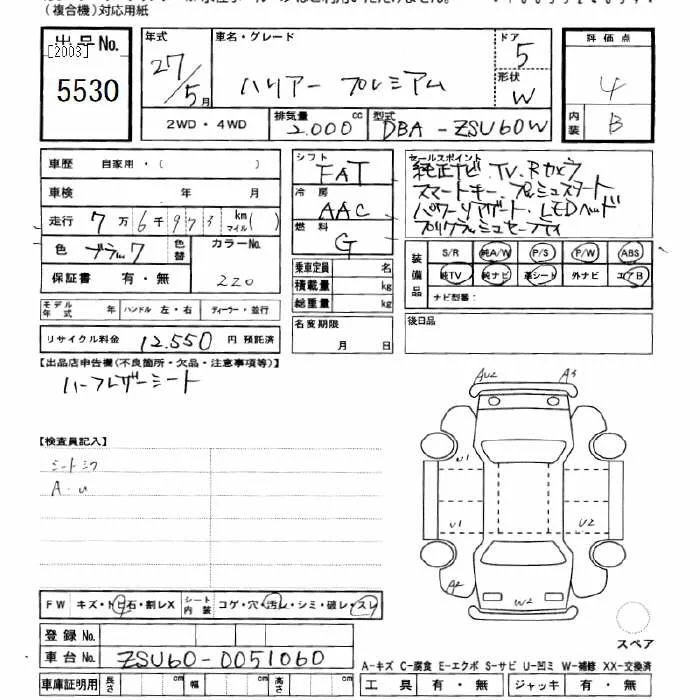 (複合機)対応用紙
出品No.
[2003]
5530
年式 車名・グレード ドア 評価点
27/5月 ハリアー プレミアム 5 4
形状 W
内装 B
2WD・4WD 排気量 2.000 cc 型式 DBA-ZSU60W
車歴 自家用・( )
車検 年 月
走行 7万6千973 km マイル( )
色 ブラック 色替 カラーNo. 220
保証書 有・無
モデル年式 年 ハンドル 左・右 ディーラー・並行
リサイクル料金 12.550 円 預託済
シフト FAT
冷房 AAC
燃料 G
乗車定員 名
積載量 kg
総重量 kg
名変期限
月 日
セールスポイント
純正ナビ、TV、Rカメラ
スマートキー、プッシュスタート
パワーリアゲート・LEDヘッド
プリクラッシュセーフティ
装備品
S/R 純A/W P/S P/W ABS
純TV 純ナビ 革シート 外ナビ エアB
ナビ型番:
後日品
【出品店申告欄(不良箇所・欠品・注意事項等)】
ハーフレザーシート
【検査員記入】
シートシワ
A・U
AU2 A3
U1
U1 U2
A2
W2
スペア
FW キズ・トビ石・割レX シート内装 コゲ・穴・汚レ・シミ・破レ・スレ
登録No.
車台No. ZSU60-0051060
車庫証明用 長さ cm 幅 cm 高さ cm
A-キズ C-腐食 E-エクボ S-サビ U-凹ミ W-補修 XX-交換済
工具 有・無 ジャッキ 有・無